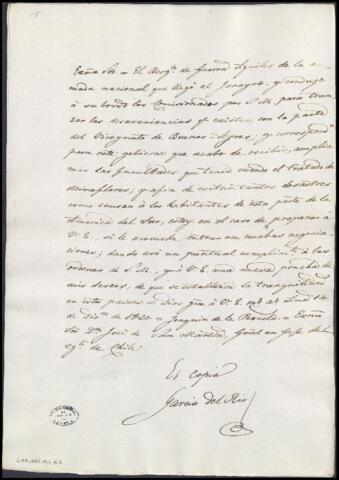 15
Exmo Sor = El Bergn. de Guerra Aquiles de la ar-
mada nacional que llegó al Guayra, y conduxo
á su bordo los Comisionados por S. M. para tran-
zar las desaveniencias qe. existen con la parte
del Vireynato de Buenos-Ayres; y correspond.
para este gobierno que acabo de recibir, amplia-
mas las facultades que tenia cuando el tratado de
Miraflores; y á fin de evitar tantos desastres
como causan á los habitantes de esta parte de la
America del Sur, estoy en el caso de proponer á
V. E., si le acomoda entrar en nuebas negocia-
ciones; dando asi un puntual cumplimto. á las
ordenes de S. M., y á V. E. una nueva prueba de
mis deseos, de que se establezca la tranquilidad
en estos paises = Dios gue. á V. E. ms. as. Lima 14.
de Dice. de 1820. = Joaquin de la Pezuela = Exmo
Sor. Dn. José de San Martin, Gral en Gefe del
egto. de Chile.
Es copia
Garcia del Rio